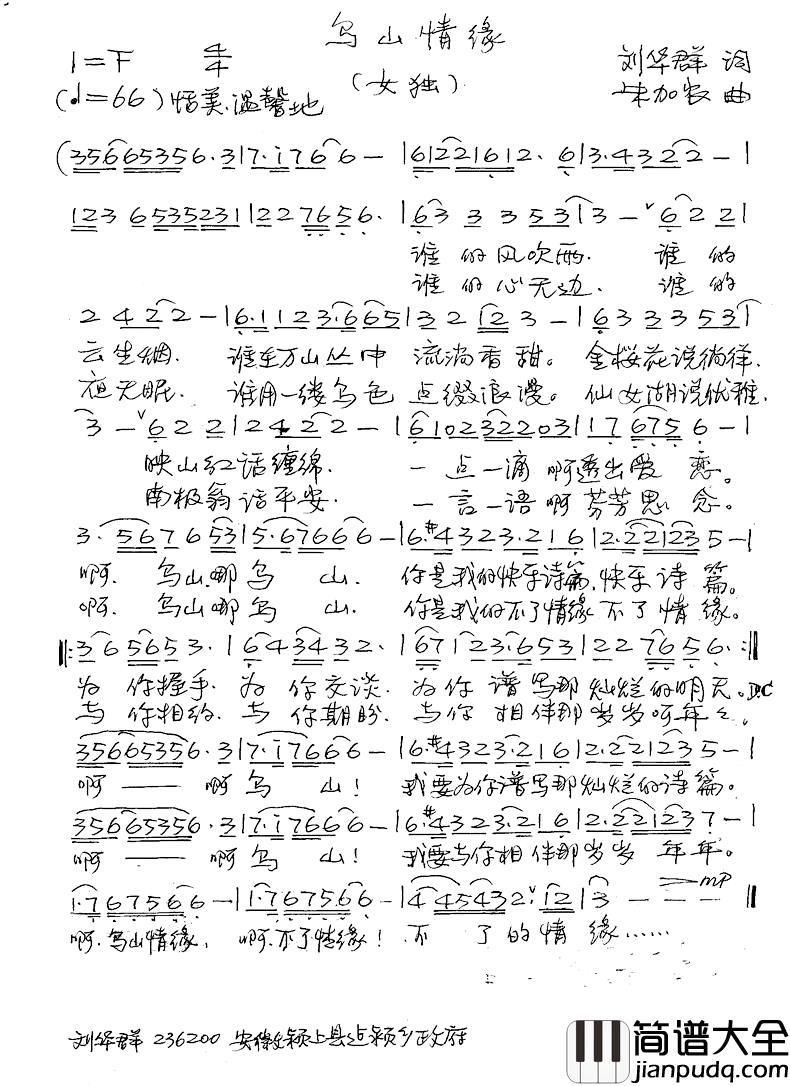 乌山情缘
1=F 4/4
(女独)
刘华群 词
朱加农 曲
(♩=66) 恬美、温馨地
(35665356.3|7.i766-|61221612.6|3.4322-|
123 6535231|227656.|633353|3-ˇ622|
谁的风吹雨. 谁的
谁的心无边. 谁的
2422-|6.1123.665|32123-|633353|
云生烟. 谁在万山丛中 流淌香甜。金桜花说徜徉.
夜无眠. 谁用一缕乌色 点缀浪漫。仙女湖说优雅.
3-ˇ622|2422-|6102322203|176756-|
映山红话缠绵. 一点一滴啊透出爱恋。
南极翁话平安. 一言一语啊芬芳思念。
3.567653|5.67666-|6.#4323.216|2.221235-|
啊. 乌山哪乌山. 你是我的快乐诗篇,快乐诗篇。
啊. 乌山哪乌山. 你是我的不了情缘不了情缘。
‖:365653.|643432.|67123.653|227656.:‖
为你握手.为你交谈.为你谱写那灿烂的明天。D.C
与你相约.与你期盼.与你相伴那岁岁啊年年.
356665356.3|7.i7666-|6.#4323.216|2.221235-|
啊——啊乌山! 我要为你谱写那灿烂的诗篇。
356665356.3|7.i7666-|6.#4323.216|2.221237-|
啊——啊乌山! 我要与你相伴那岁岁年年。
1.767566-|1.7675.66-|445432.ˇi2|3--- mp‖
啊.乌山情缘, 啊.不了情缘! 不了的情缘……
刘华群 236200 安徽颍上县 乡政府
简谱大全
jianpudq.com